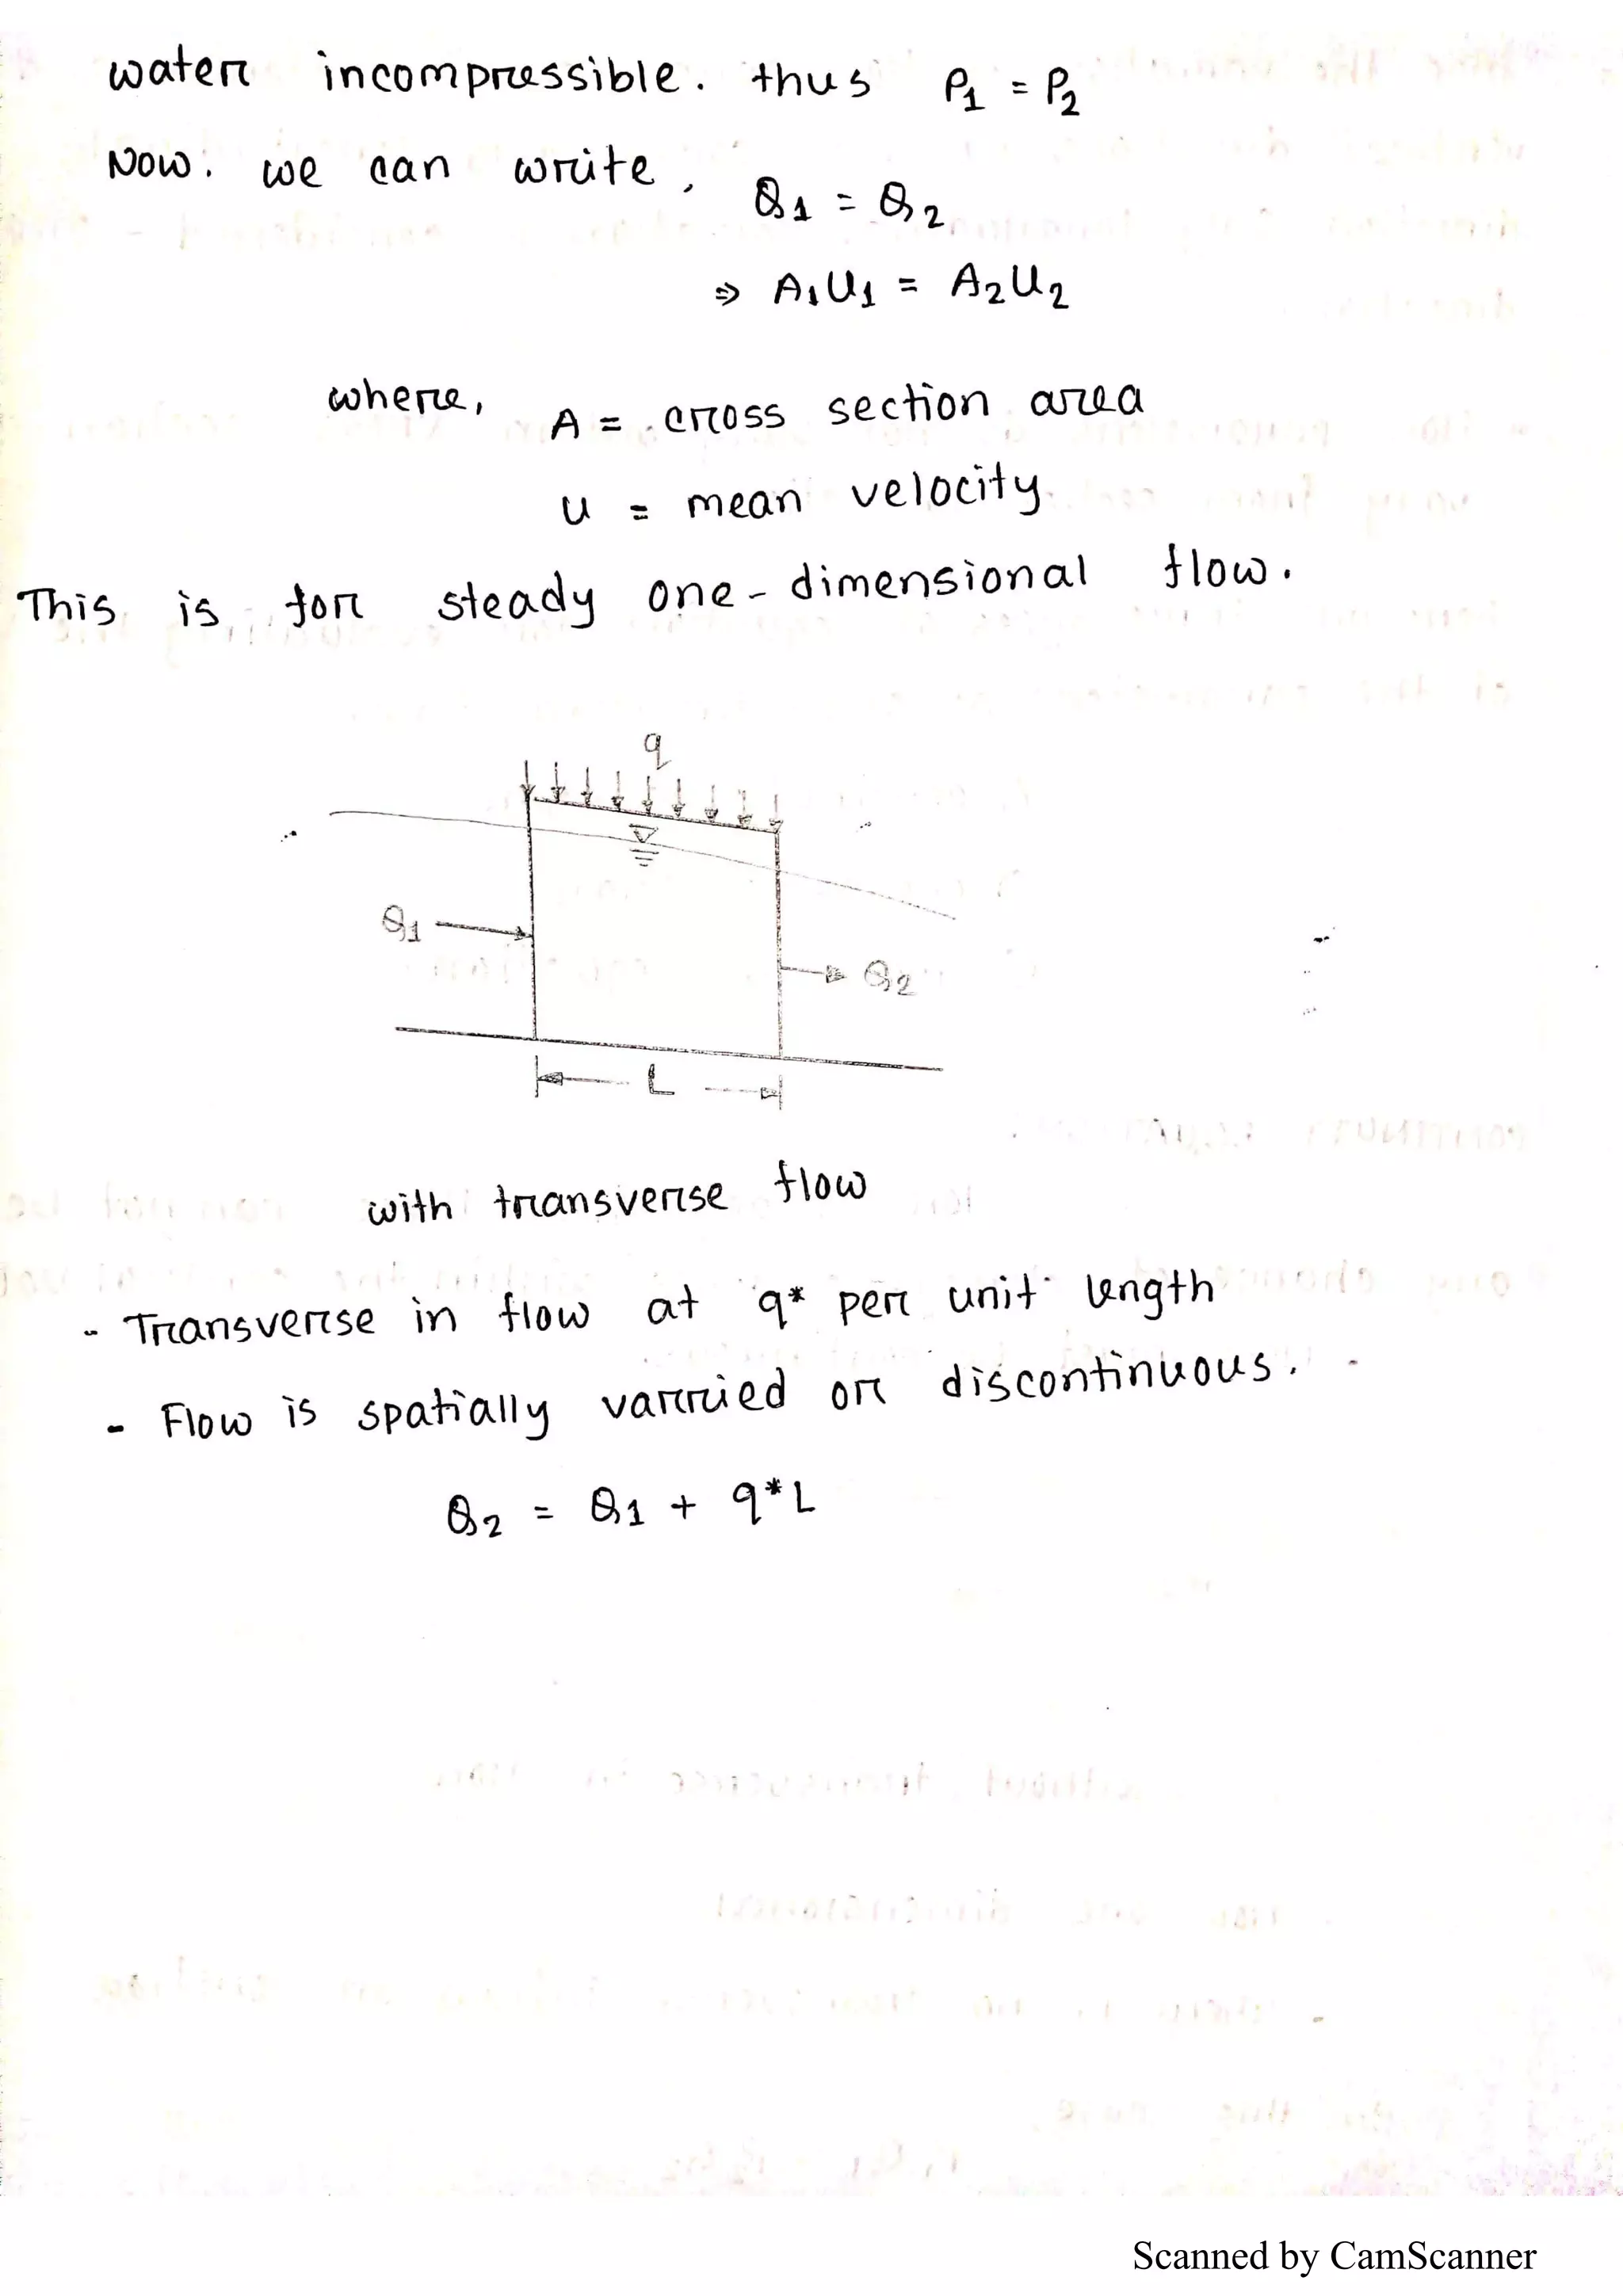 water incompressible. thus ρ1 = ρ2
Now. we can write, Q1 = Q2
⇒ A1U1 = A2U2
where, A = cross section area
U = mean velocity
This is for steady one-dimensional flow.
q
Q1
Q2
L
with transverse flow
- Transverse in flow at q* per unit length
- Flow is spatially varried or discontinuous.
Q2 = Q1 + q*L
Scanned by CamScanner